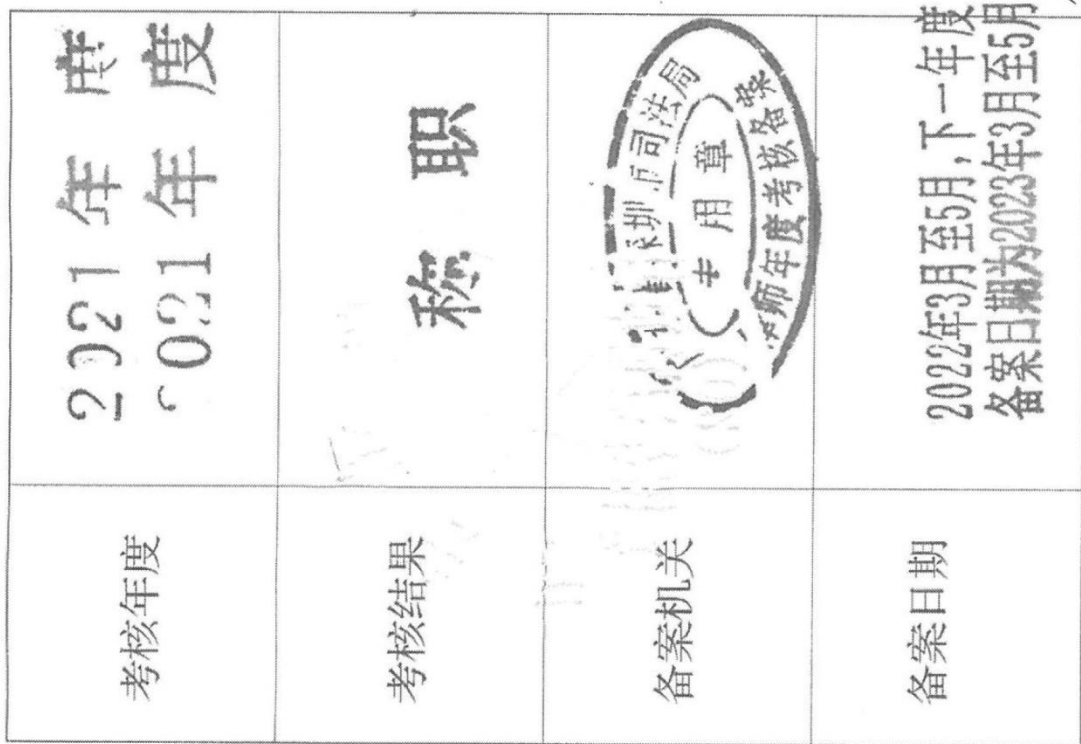 考核年度
2021年度
2021年度
考核结果
称职
备案机关
深圳市司法局
专用章
律师年度考核备案
备案日期
2022年3月至5月,下一年度
备案日期为2023年3月至5月